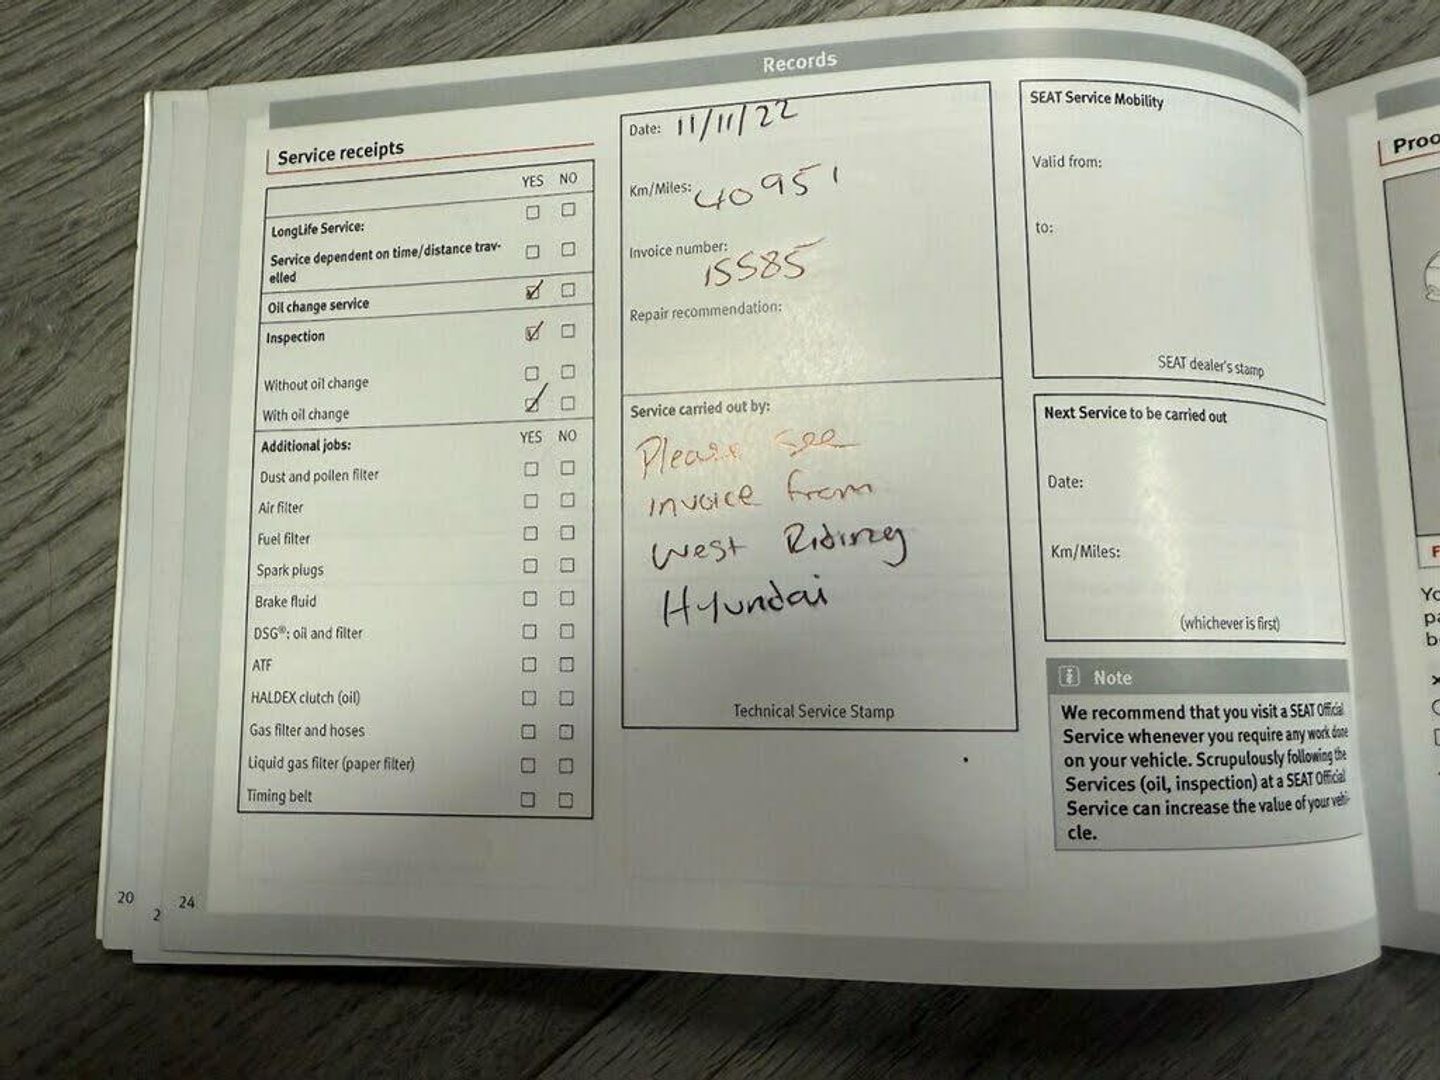 Records
Service receipts
YES NO
LongLife Service:
Service dependent on time/distance trav-
elled
Oil change service
Inspection
Without oil change
With oil change
Additional jobs:
YES NO
Dust and pollen filter
Air filter
Fuel filter
Spark plugs
Brake fluid
DSG®: oil and filter
ATF
HALDEX clutch (oil)
Gas filter and hoses
Liquid gas filter (paper filter)
Timing belt
Date: 11/11/22
Km/Miles: 40951
Invoice number:
15585
Repair recommendation:
Service carried out by:
Please see
invoice from
West Riding
Hyundai
Technical Service Stamp
SEAT Service Mobility
Valid from:
to:
SEAT dealer's stamp
Next Service to be carried out
Date:
Km/Miles:
(whichever is first)
Note
We recommend that you visit a SEAT Official
Service whenever you require any work done
on your vehicle. Scrupulously following the
Services (oil, inspection) at a SEAT Official
Service can increase the value of your vehi-
cle.
20
2
24
Proo
F
Yo
pa
b